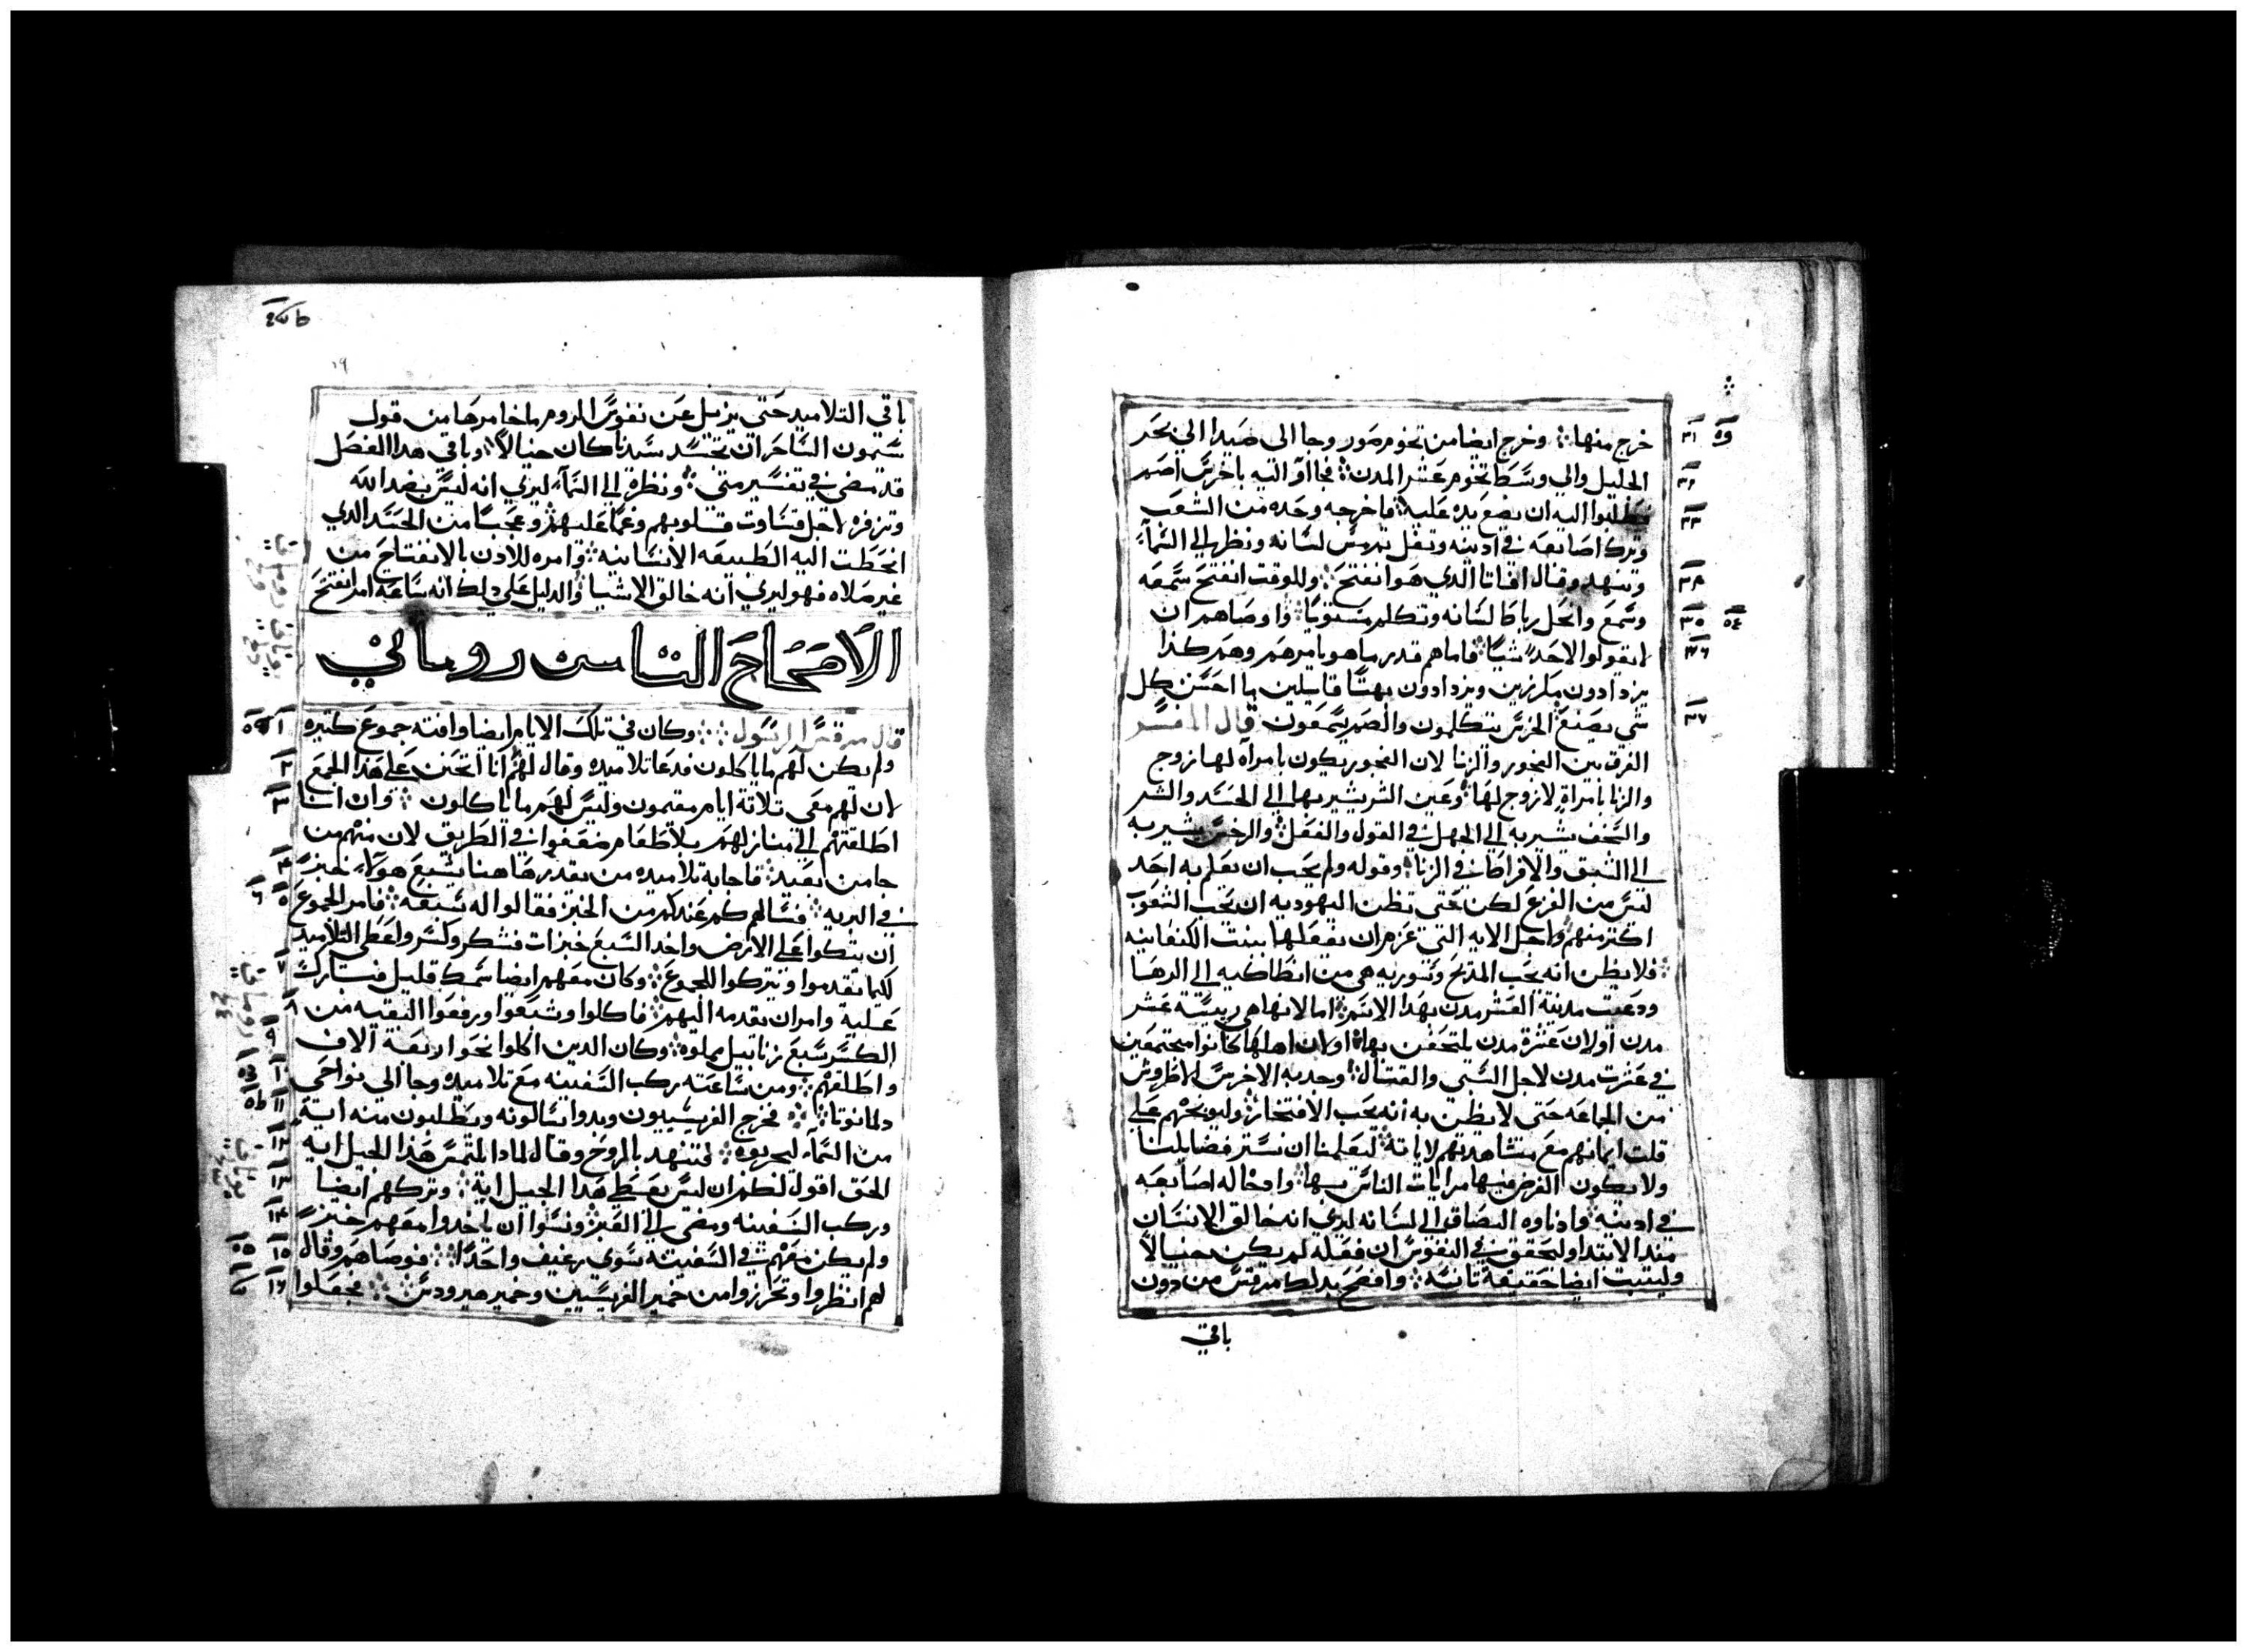 خرج منها وخرج ايضا من تخوم صور وجا الى صيدا الي بحر
الجليل والي وسط تخوم عشر المدن فجاوا اليه باخرس اصم
وطلبوا اليه ان يضع يده عليه فاخرجه وحده من الشعب
وترك اصابعه في ادنيه وتفل ولمس لسانه ونظر الي السمآء
وتنهد وقال افاتا الدي هو انفتح وللوقت انفتح سمعه
وسمع وانحل رباط لسانه وتكلم مستويا واوصاهم ان
لا يقولوا لاحد شيا فاما هم قدر ما هو يامرهم وهم كذا
يزدادون ويزدادون بهتا قايلين ما احسن كل
شي يصنع الخرس يتكلمون والصم يسمعون قال المفسر
الفرق بين الفجور والزنا لان الفجور يكون بامرآه لها زوج
والزنا بامراة لا زوج لها وعين الشر يشير بها الي الحسد والشر
والسخف يشير به الي الجهل في القول والفعل والرجس يشير به
الى الشبق والافراط في الزنا وقوله ولم يحب ان يعلم به احد
ليس من الفزع لكن حتى تظن اليهوديه ان يحب الشعوب
اكتر منهم واجل الايه التي عزم ان يفعلها ببنت الكنعانيه
فلا يظن انه يحب المديح وسوريه هي من انطاكيه الي الرها
ودعيت مدينة العشر مدن بهذا الاسم اما لانها هي رييسة عشر
مدن او لان عشرة مدن يلتحفن بها او لان اهلها كانوا مجتمعين
في عشرت مدن لاجل السبي والقتال وجدبه الاخرس الاطروش
من الجماعه حتى لا يظن به انه يحب الافتخار وليوبخهم علي
قلت ايمانهم مع مشاهدتهم لاياته ليعلمنا ان نستر فضايلنا
ولا يكون الغرض فيها مرايات الناس بها وادخاله اصابعه
في ادنيه وادناوه البصاق الي لسانه ليري انه خالق الانسان
مند الابتدا وليحقق في النفوس ان فعله لم يكن خيالا
وليتبت ايضا حقيقة تانسه وافصح بدلك مرقس من دون
باقي
باقي التلاميد حتى يزيل عن نفوس الروم ما خامرها من قول
سيمون الساحر ان تجسد سيدنا كان خيالا وباقي هدا الفصل
قد مضي في تفسير متي ونظره الي السمآء ليري انه ليس بضد الله
وتزفره لاجل قساوت قلوبهم وغما عليهم وعجبا من الحسد الدي
انحطت اليه الطبيعه الانسانيه وامره للادن بالانفتاح من
غير صلاه فهو ليري انه خالق الاشيا والدليل علي دلك انه ساعة امر انفتح
الاصحاح التامن روماني
قال مرقس الرسول وكان في تلك الايام ايضا وافته جموع كتيره
ولم يكن لهم ما ياكلون فدعا تلاميده وقال لهم انا اتحنن علي هذا الجمع
لان لهم معي تلاتة ايام مقيمون وليس لهم ما ياكلون وان انا
اطلقتهم الي منازلهم بلا طعام ضعفوا في الطريق لان منهم من
جا من بعيد فاجابه تلاميده من يقدر هاهنا يشبع هولآء خبز
في البريه فسالهم كم عندكم من الخبز فقالوا له سبعه فامر الجموع
ان يتكوا علي الارض واخد السبع خبزات فشكر وكسر واعطي التلاميد
لكيما يقدموا وتركوا للجموع وكان معهم ايضا سمك قليل فبارك
عليه وامر ان يقدمه اليهم فاكلوا وشبعوا ورفعوا البقيه من
الكسر سبع زنابيل مملوه وكان الدين اكلوا نحو اربعة الاف
واطلقهم ومن ساعته ركب السفينه مع تلاميده وجا الي نواحي
دلمانوتا فخرج الفريسيون وبدوا يسالونه ويطلبون منه اية
من السمآء ليجربوه فتنهد بالروح وقال لمادا يلتمس هذا الجيل ايه
الحق اقول لكم ان ليس يعطي هدا الجيل اية وتركهم ايضا
وركب السفينه ومضي الي العبر ونسوا ان ياخدوا معهم خبز
ولم يكن معهم في السفينه سوي رغيف واحدا فوصاهم وقال
لهم انظروا وتحرزوا من خمير الفريسيين وخمير هيرودس فجعلوا